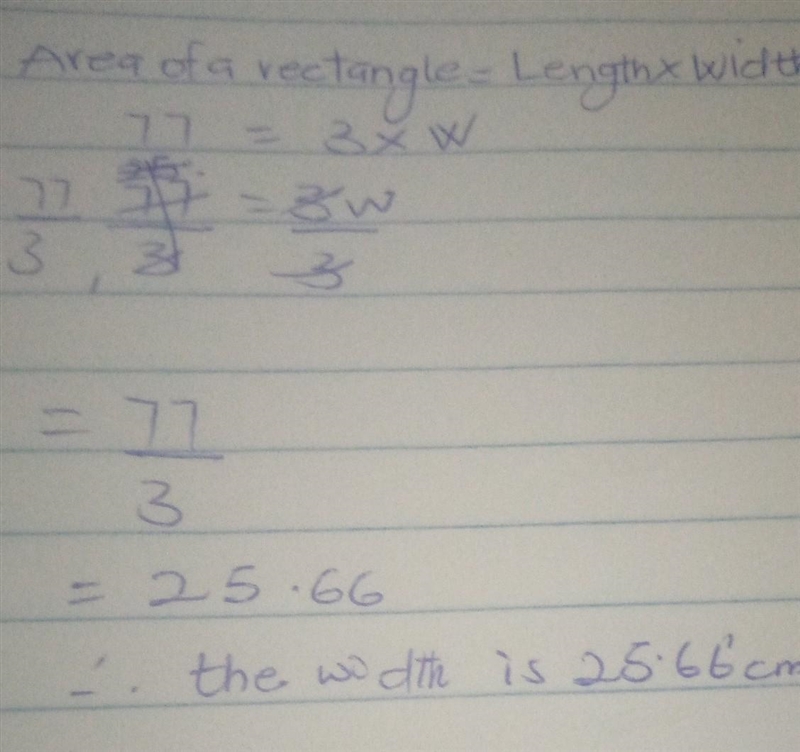 Area of a rectangle = Length x Width
77 = 3 x W
77/3 , 77/3 = 3W/3
= 77/3
= 25.66
∴ the width is 25.66 cm